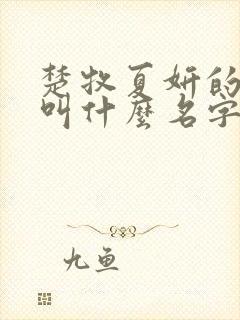 楚牧夏妍的
叫什麼名字
九鱼